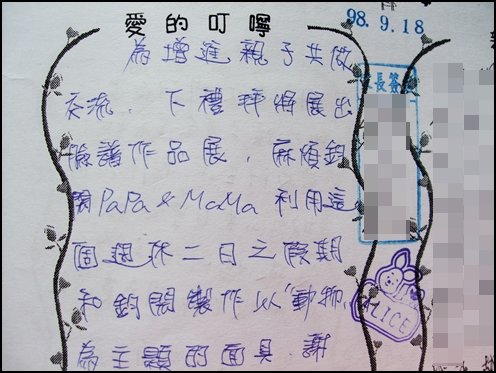 愛的叮嚀
98.9.18
為增進親子共做
交流，下禮拜將展出
臉譜作品展，麻煩鈞
閎PaPa & MaMa利用這
個週休二日之假期
和鈞閎製作以"動物"
為主題的面具.謝
長簽
ALICE